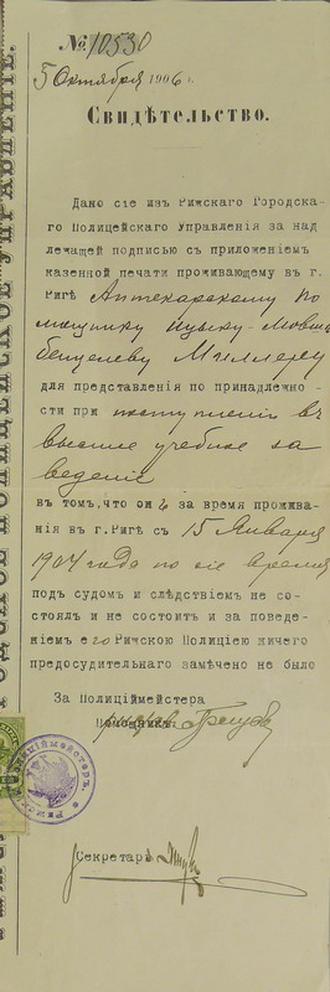 № 10530
5 Октября 1906 г.
Свидѣтельство.
Дано сіе изъ Рижскаго Городска-
го Полицейскаго Управленія за над
лежащей подписью съ приложеніемъ
казенной печати проживающему въ г.
Ригѣ Аптекарскому по
мощнику Ицыку-Мовша
Бецалеву Миллеру
для представленія по принадлежно
сти при поступленіи въ
высшее учебное за
веденіе
въ томъ, что онъ за время прожива
нія въ г. Ригѣ съ 15 Января
1904 года по сіе время
подъ судомъ и слѣдствіемъ не со-
стоялъ и не состоитъ и за поведе-
ніемъ его Рижскою Полиціею ничего
предосудительнаго замѣчено не было
За Полиціймейстера
Помощникъ
Секретарь